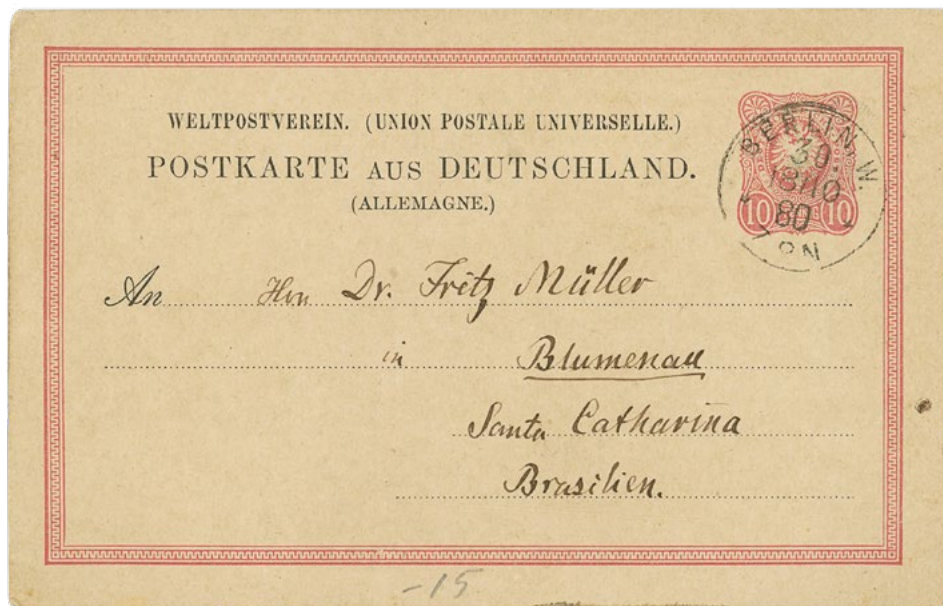 WELTPOSTVEREIN. (UNION POSTALE UNIVERSELLE.)
POSTKARTE AUS DEUTSCHLAND.
(ALLEMAGNE.)
BERLIN W.
30.
80
10 10
An Hrn Dr. Fritz Müller
in Blumenau
Santa Catharina
Brasilien.
-15